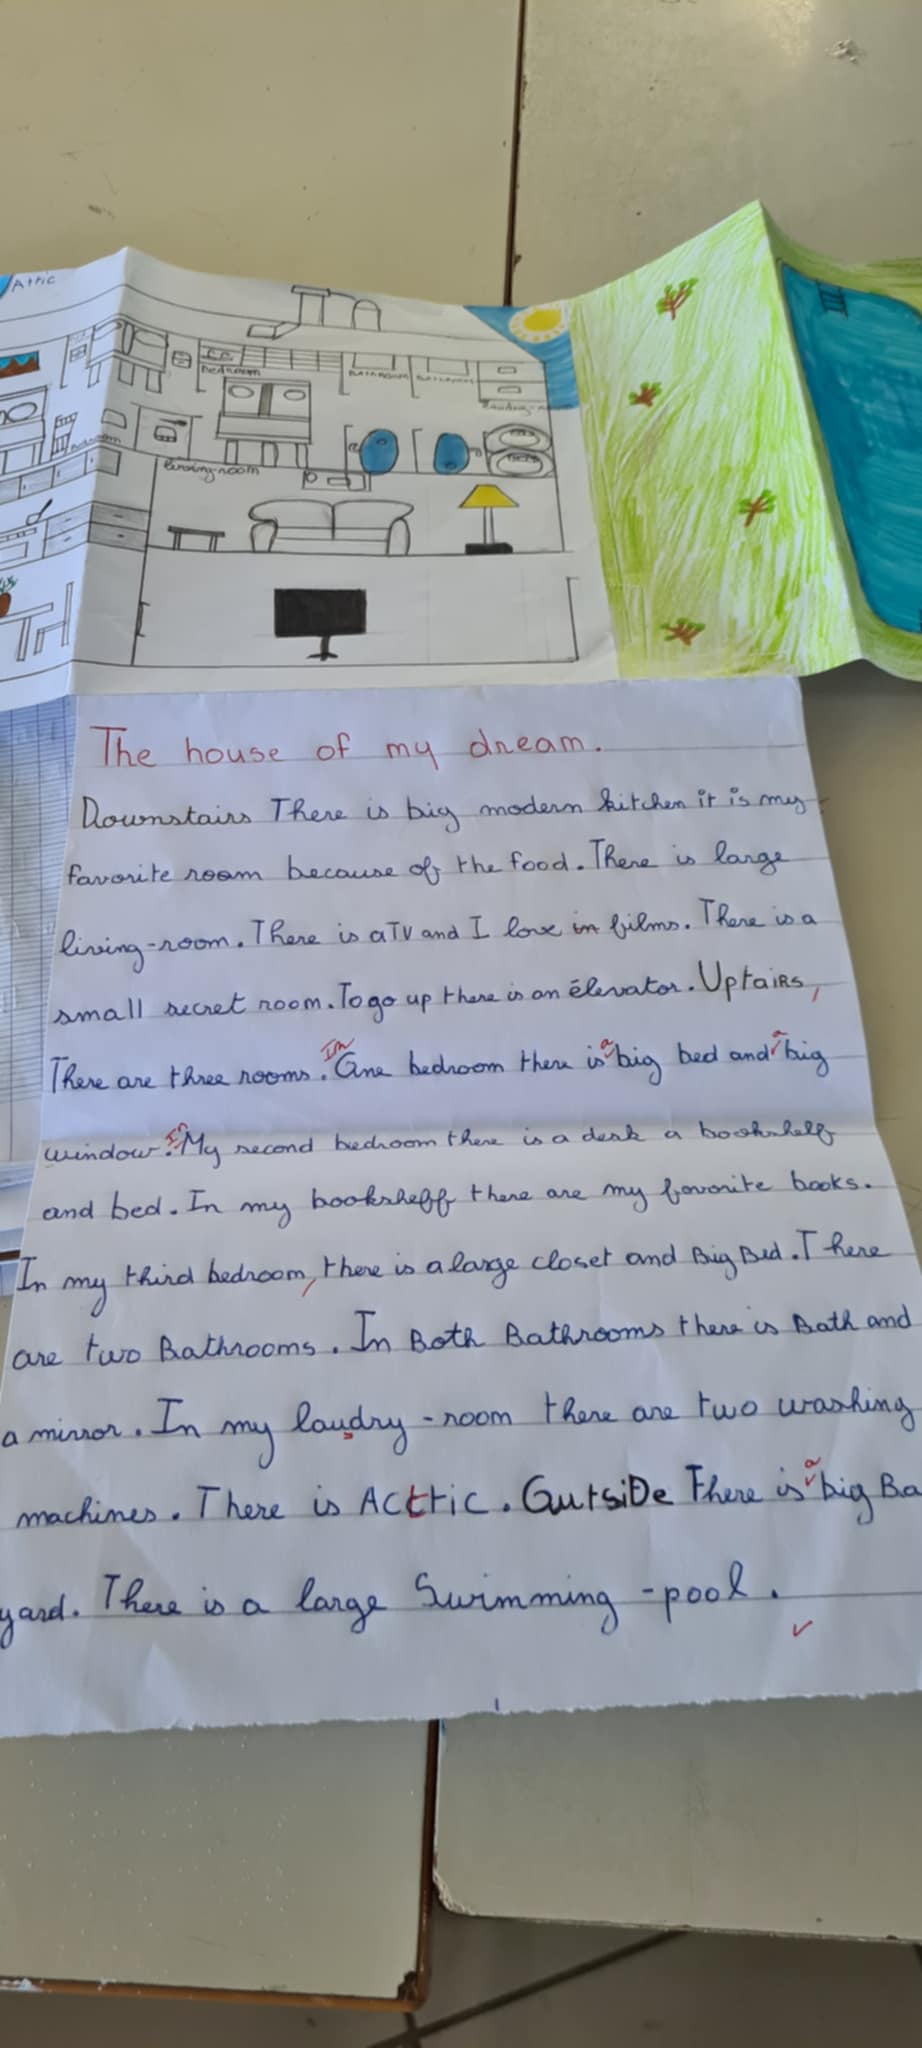 Attic
Bedroom
Bathroom
Bathroom
living-room
The house of my dream.
Downstairs There is big modern kitchen it is my
favorite room because of the food. There is large
living-room. There is a TV and I love in films. There is a
small secret room. To go up there is an élevator. Uptairs,
There are three rooms. In One bedroom there is a big bed and a big
window. In My second bedroom there is a desk a bookshelf
and bed. In my booksheff there are my favorite books.
In my third bedroom, there is a large closet and Big Bed. There
are two Bathrooms. In Both Bathrooms there is Bath and
a mirror. In my laudry-room there are two washing
machines. There is Acttic. OutsiDe There is a big Ba
yard. There is a large Swimming-pool.